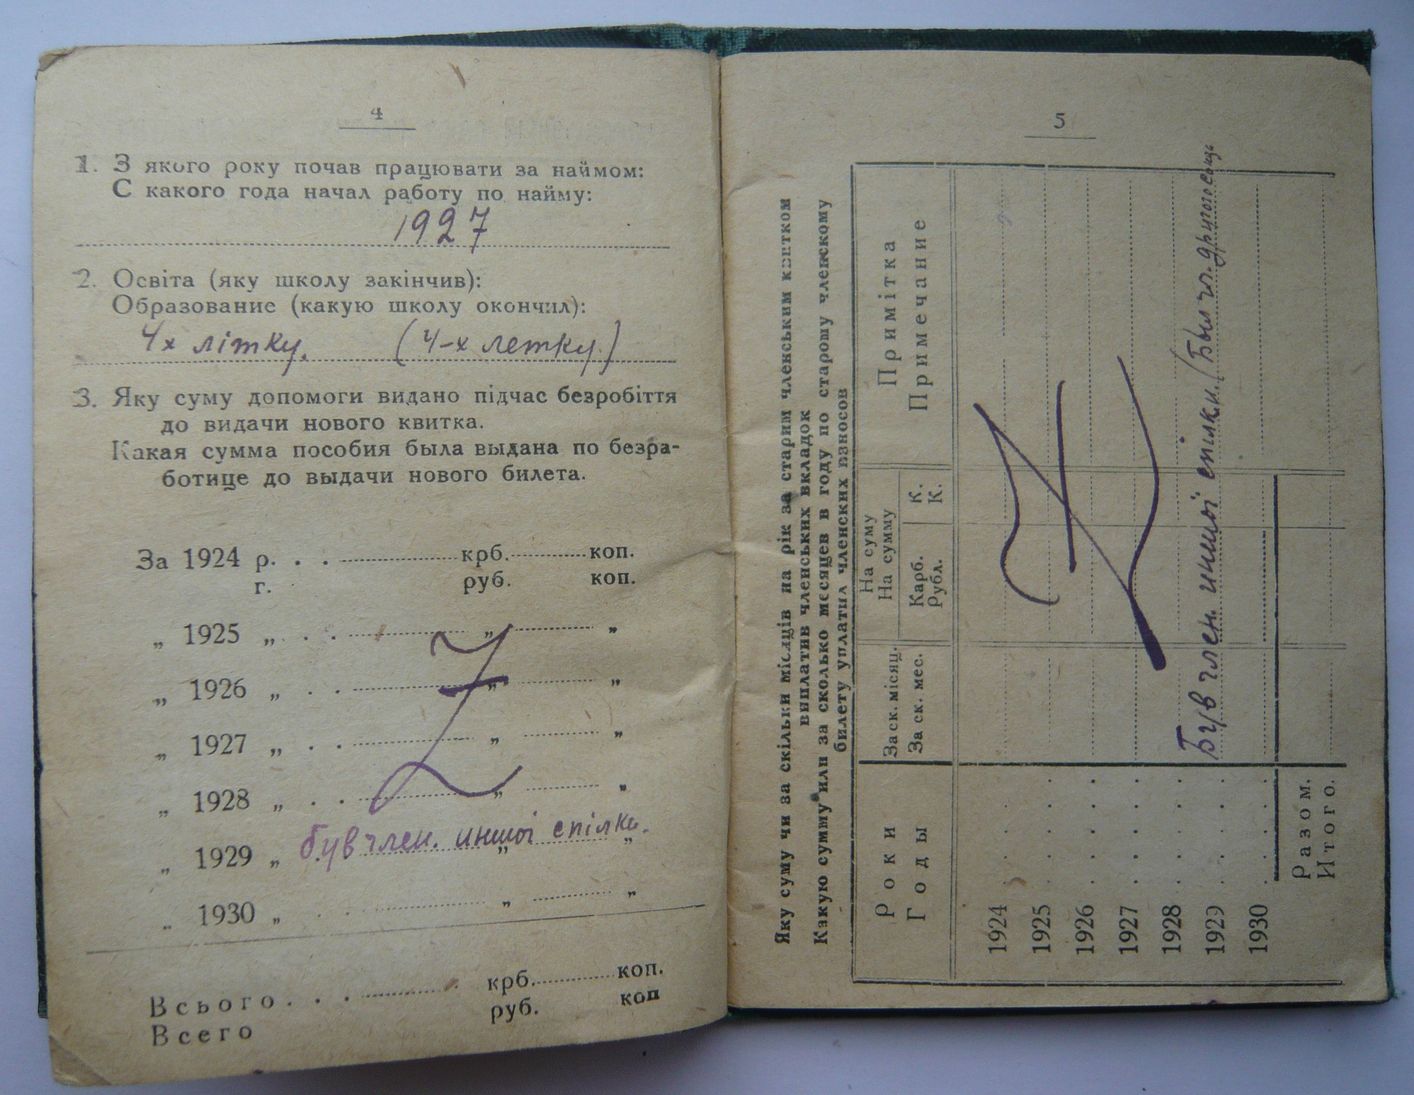 4
1. З якого року почав працювати за наймом:
С какого года начал работу по найму:
1927
2. Освіта (яку школу закінчив):
Образование (какую школу окончил):
4х літку. (4-х летку.)
3. Яку суму допомоги видано підчас безробіття
до видачи нового квитка.
Какая сумма пособия была выдана по безра-
ботице до выдачи нового билета.
За 1924 р. . . крб. коп.
г. руб. коп.
„ 1925 „ . . „ „
„ 1926 „ . . „ „
„ 1927 „ . . „ „
„ 1928 „ . . „ „
був член. иншої спілки.
„ 1929 „ „ „
„ 1930 „ „ „
Всього . . . крб. коп.
Всего руб. коп
5
Яку суму чи за скільки місяців на рік за старим членським квитком
виплатив членських вкладок
Какую сумму или за сколько месяцев в году по старому членскому
билету уплатил членских взносов
Роки
Годы
За ск. місяц.
За ск. мес.
На суму
На сумму
Карб. К.
Рубл. К.
Примітка
Примечание
1924 . . .
1925 . . .
1926 . . .
1927 . . .
1928 . . .
Був член. иншої спілки. (Был чл. другого союза
1929 . . .
1930 . . .
Разом.
Итого.